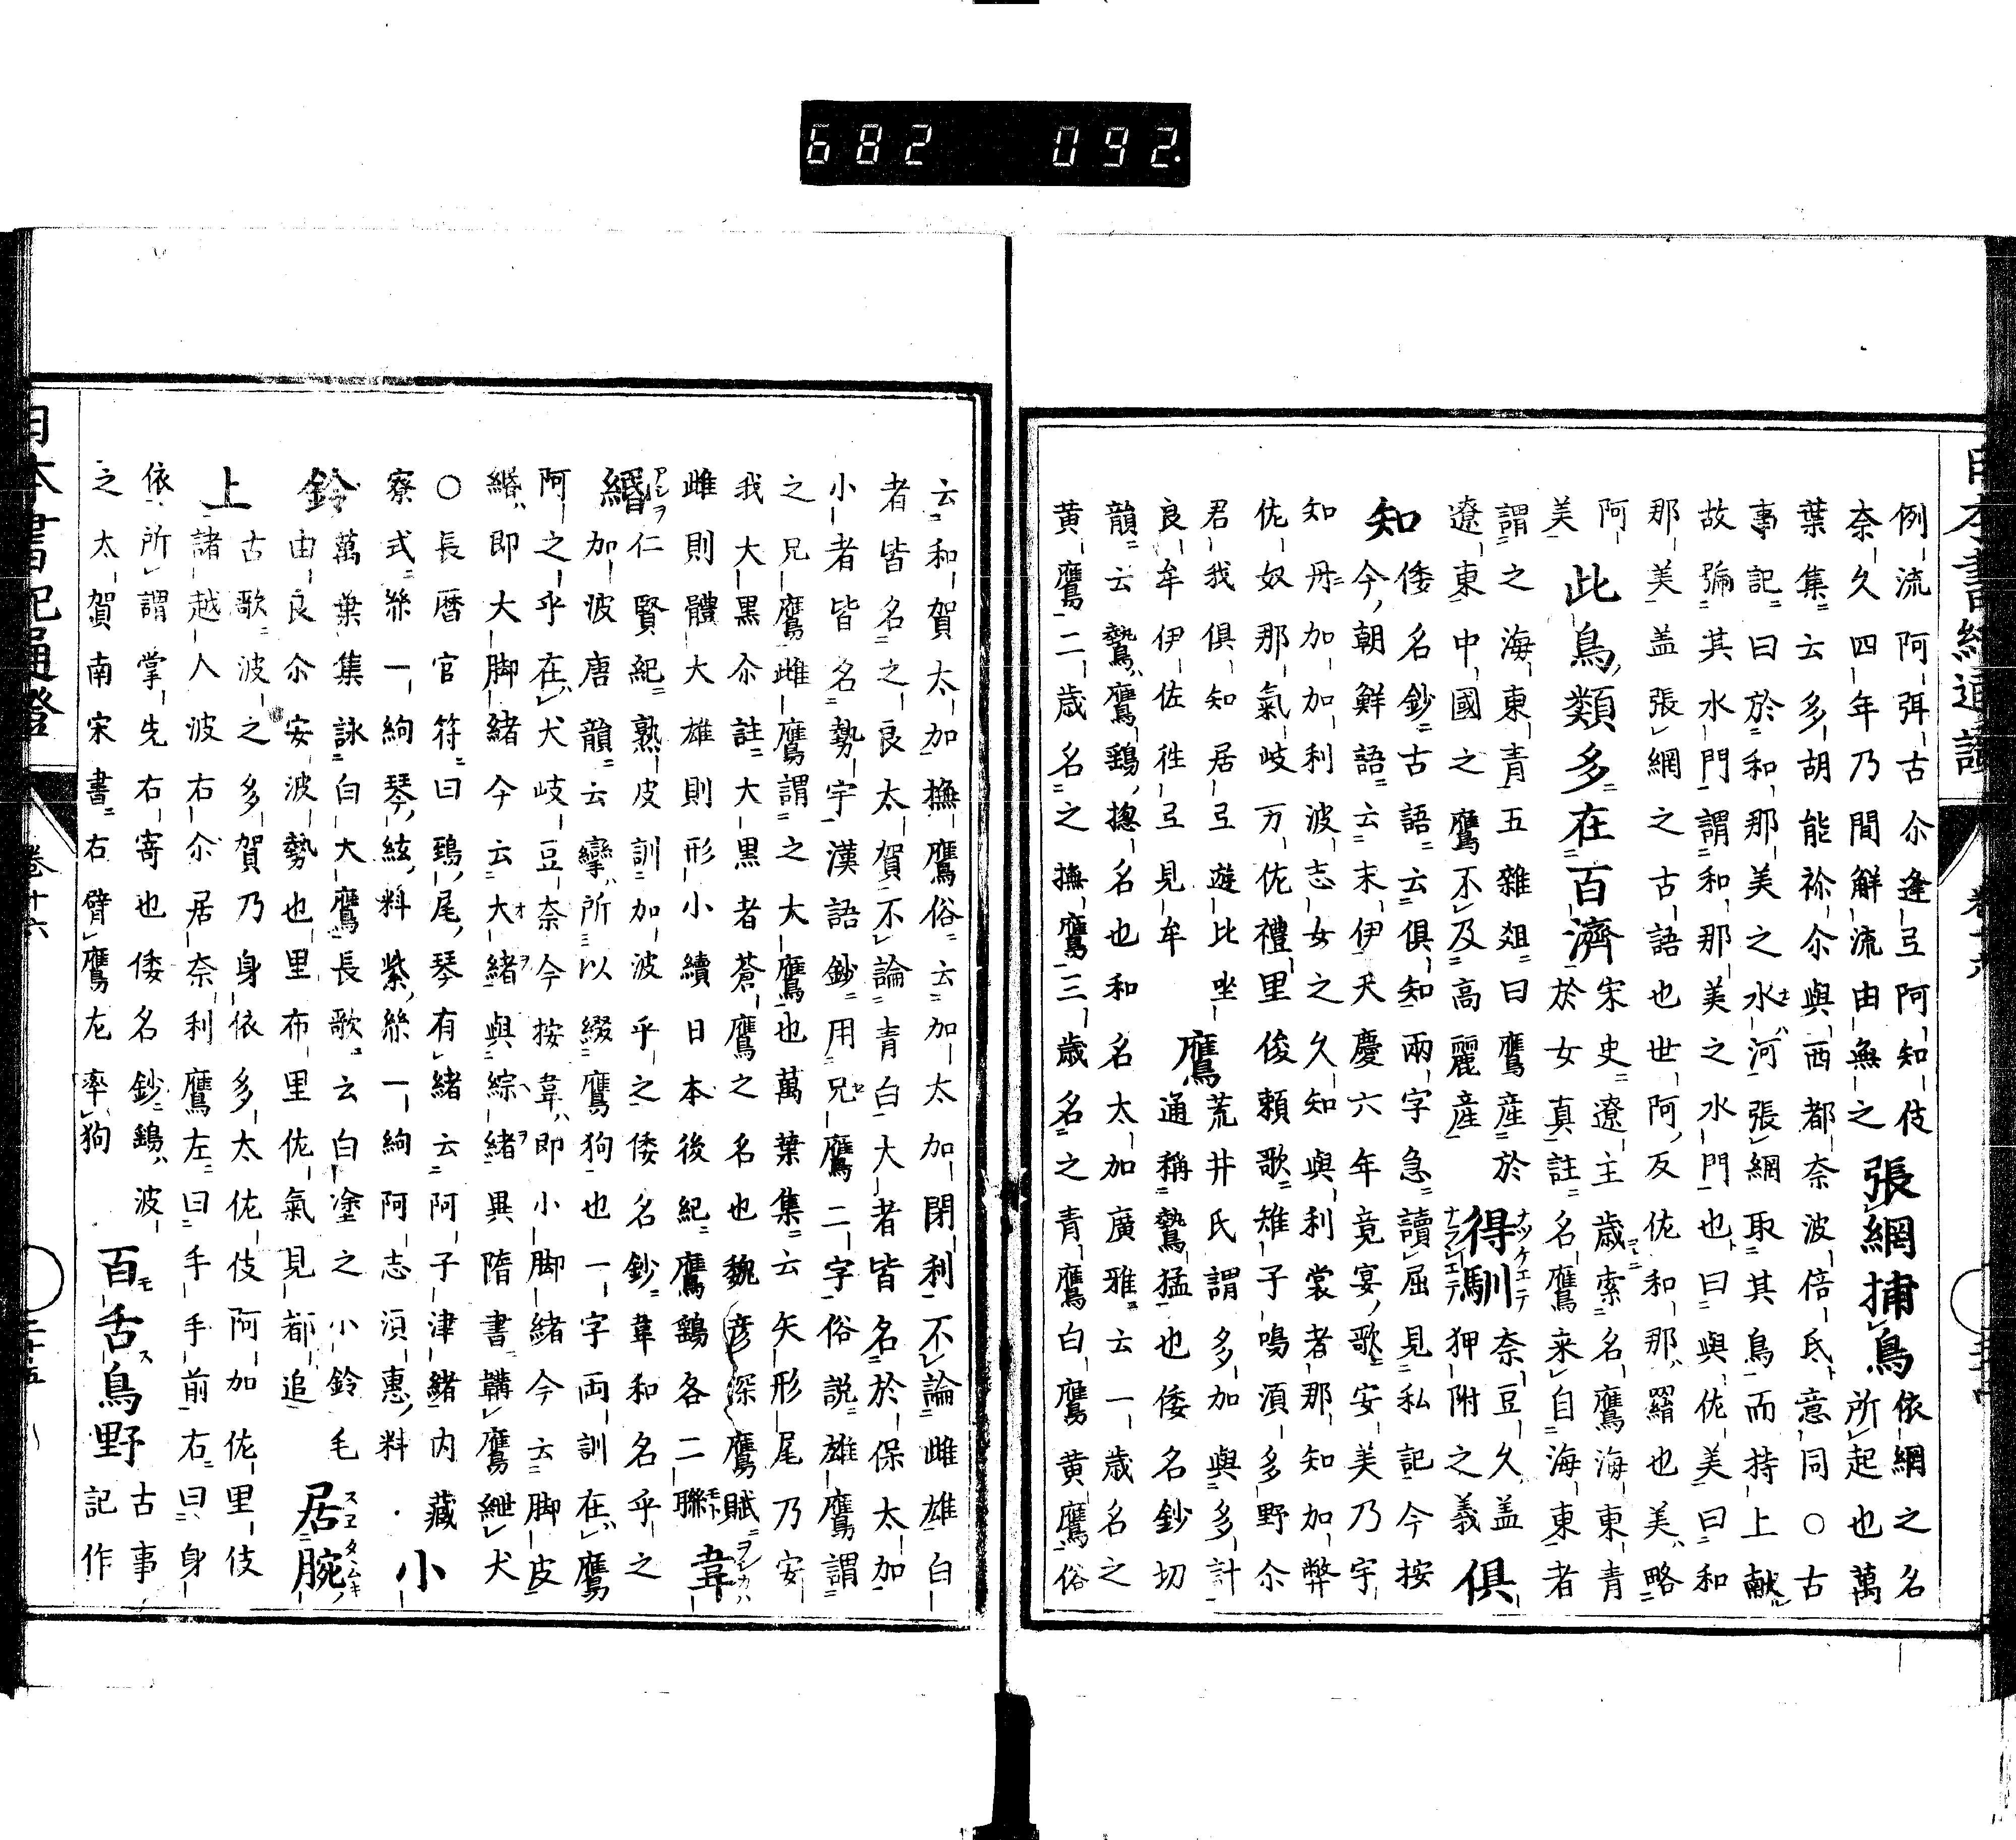 682 092.
日本書紀通證 卷十六
例流阿弭古尒逢弖阿知伎 張網捕鳥 依網之名
奈久四年乃間解流由無之 所起也萬
葉集云多胡能祢尒與西都奈波倍氐意同○古
事記曰於和那美之水河張網取其鳥而持上献
故號其水門謂和那美之水門也曰與佐美曰和
那美盖張網之古語也世阿反佐和那羅也美略
阿 此鳥類多在百濟 宋史遼主歲索名鷹海東青
美 於女真註名鷹来自海東者
謂之海東青五雜爼曰鷹産於 得馴 ナツケエテ 奈豆久盖
遼東中國之鷹不及高麗産 ナラシエテ 狎附之義 俱
知 倭名鈔古語云俱知兩字急讀屈見私記今按
今朝鮮語云末伊天慶六年竟宴歌安美乃宇
知丹加加利波志女之久知與利裳者那知加弊
佐奴那氣岐万佐禮里俊頼歌雉子鳴湏多野尒
君我俱知居弖遊比坐 鷹 荒井氏謂多加與多計
良牟伊佐徃弖見牟 通稱鷙猛也倭名鈔切
韻云鷙鷹鷂揔名也和名太加廣雅云一歲名之
黄鷹二歲名之撫鷹三歲名之青鷹白鷹黄鷹俗
云和賀太加撫鷹俗云加太加閇利不論雌雄白
者皆名之良太賀不論青白大者皆名於保太加
小者皆名勢宇漢語鈔用兄鷹二字俗説雄鷹謂
之兄鷹雌鷹謂之大鷹也萬葉集云矢形尾乃安
我大黒尒註大黒者蒼鷹之名也魏彦深鷹賦
雌則體大雄則形小續日本後紀鷹鷂各二聯 韋 ヲシカハ
緡 アシヲ 仁賢紀熟皮訓加波乎之倭名鈔韋和名乎之
加波唐韻云攣所以綴鷹狗也一字両訓在鷹
阿之乎在犬岐豆奈今按韋即小脚緒今云脚皮
緡即大脚緒今云大緒與綜緒異隋書韝鷹紲犬
○長暦官符曰鵄尾琴有緒云阿子津緒内藏
寮式絲一絢琴絃料紫絲一絢阿志湏惠料 小
鈴 萬葉集詠白大鷹長歌云白塗之小鈴毛
由良尒安波勢也里布里佐氣見都追 居腕 スヱタヽムキ
上 古歌波之多賀乃身依多太佐伎阿加佐里伎
諸越人波右尒居奈利鷹左曰手手前右曰身
依所謂掌先右寄也倭名鈔鷂波 百舌鳥野 モス 古事
之太賀南宋書右臂鷹左牽狗 記作
日本書紀通證 卷十六 二十五